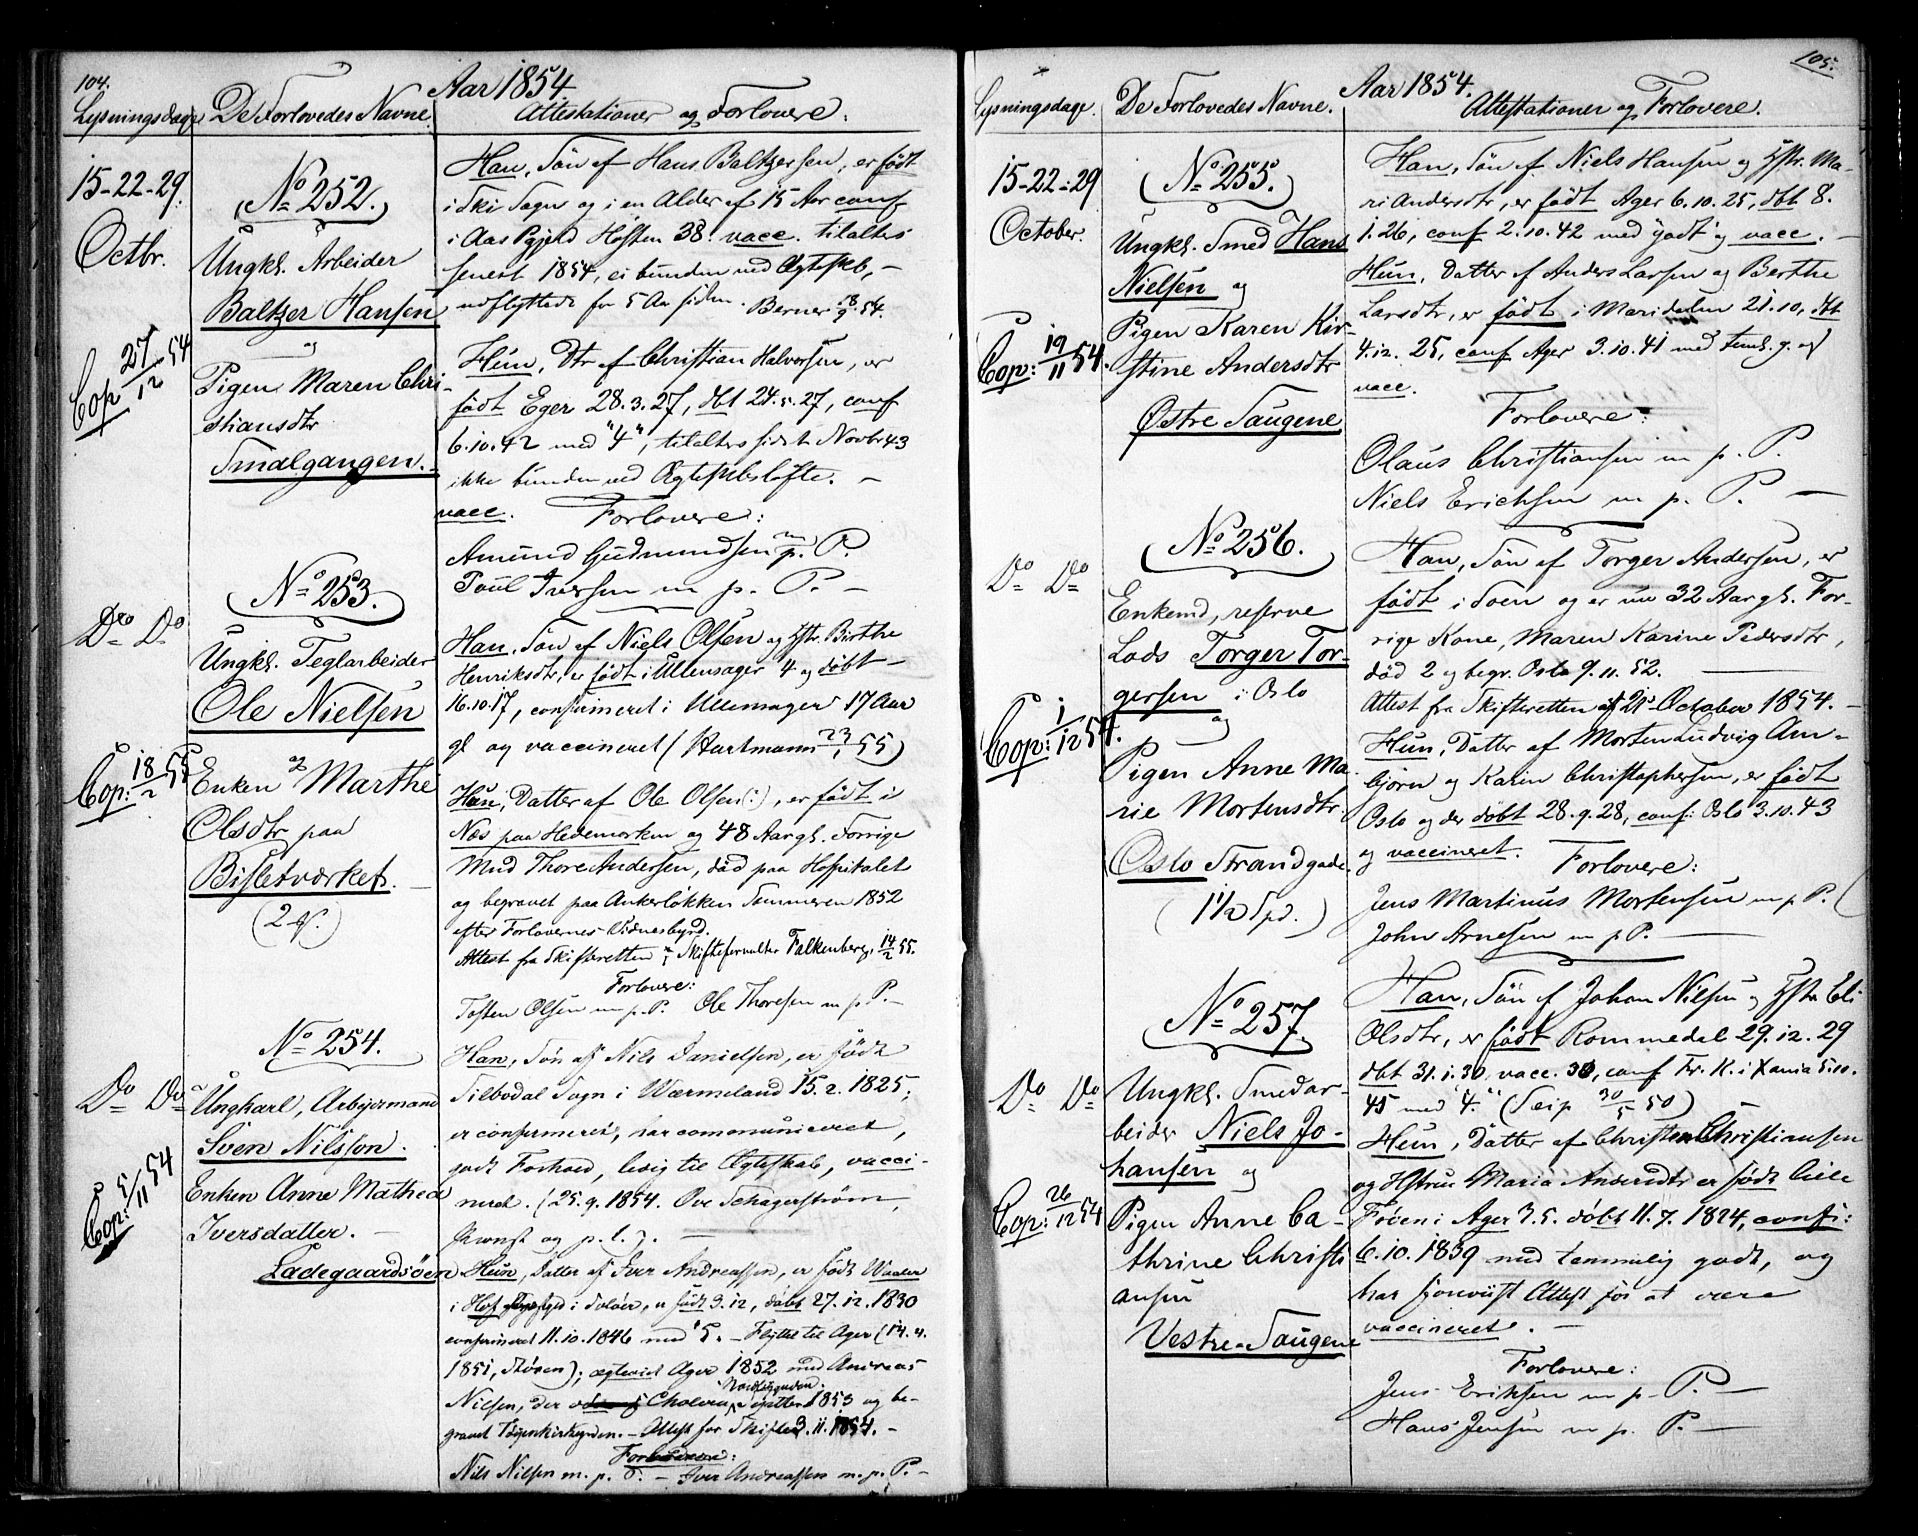 104.
Aar 1854
Lysningsdage
De Forlovedes Navne.
Attestationer og Forlovere.
15-22-29.
Octbr.
No 252.
Ungkl. Arbeider
Baltzer Hansen
og
Pigen Maren Chri-
stiansdtr
Smalgangen.
Cop 27/12 54
Han, Søn af Hans Baltzersen, er født
i Ski Sogn og i en Alder af 15 Aar conf
i Aas Pgjeld Høsten 38. vacc. tilaltes
senest 1854, ei bunden ved Ægteskb, -
udflyttede for 5 Aar siden. Berner 18/9 54.
Hun, Dtr af Christian Halvorsen, er
født Eger 28.3.27, dbt 24.5.27, conf
6.10.42 med "4", tilaltes sidst Novbr 43
ikke bunden ved Ægteskbsløfte. -
vacc. Forlovere:
Amund Gudmundsen m p. P.
Poul Iversen m p. P. -
Do Do
No 253.
Ungkl. Teglarbeider
Ole Nielsen
og
Enken Marthe
Olsdtr paa
Bisletværket.
Cop: 18/2 55
Han, Søn af Niels Olsen og Hstr. Birthe
Henriksdtr, er født i Ullensager 4 og døbt
16.10.17, confirmeret i Ullensager 17 Aar
gl og vaccineret (Hartmann 23/1 55)
Hun, Datter af Ole Olsen (:), er født i
Næs paa Hedemarken og 48 Aar gl. Forrige
Mand Thore Andersen, død paa Hospitalet
og begravet paa Ankerløkken Sommeren 1852
efter Forlovernes Vidnesbyrd.
Attest fra Skifteretten Skifteforvalter Falkenberg, 14/2 55.
Forlovere:
Tosten Olsen m p. P. Ole Thoresen m p. P. -
Do Do
No 254.
Ungkarl, Arbeidsmand
Sven Nilsson.
Enken Anne Mathea
Iversdatter. -
Ladegaardsöen
Cop: 5/11 54
Han, Søn af Nils Danielsen, er født
Silbodal Sogn i Wærmeland 15.2.1825;
er confirmeret, har communiceret,
godt Forhold, ledig til Ægteskab, vacci-
neret. (25.9.1854. Ove Schagerström,
p. l.).
Hun, Datter af Iver Andreassen, er født Waaler
i Hof i Soløer, er født 3.12, døbt 27.12.1830
confirmeret 11.10.1846 med "5. - Flyttet til Ager (14.4.
1851, Støren); ægteviet Ager 1852 med Andreas
Nilsen, der Cholera Septbr 1853 og be-
gravet Kirkegaarden. - Attest for Skifte 3.11.1854. -
Forlovere:
Nils Nilsen m. p. P. - Iver Andreassen m. p. P. -
105.
Aar 1854.
Lysningsdage.
De Forlovedes Navne.
Attestationer og Forlovere.
15-22-29
October.
No 255.
Ungkl. Smed Hans
Nielsen og
Pigen Karen Kir-
stine Andersdtr
Østre Saugene
Cop: 19/11 54.
Han, Søn af Niels Hansen og Hstr. Ma-
ri Andersdtr, er født Ager 6.10.25, dbt 8.
1.26, conf 2.10.42 med godt og vacc. -
Hun, Datter af Anders Larsen og Berthe
Larsdtr, er født i Maridalen 21.10, dbt
4.12.25, conf Ager 3.10.41 med teml. g. og
vacc.
Forlovere:
Olaus Christiansen m p. P.
Niels Erichsen m p. P. -
Do Do
No 256.
Enkemd, reserve
Lods Torger Tor-
gersen i Oslo
og
Pigen Anne Ma-
rie Mortensdtr.
Oslo Strandgade.
(1 1/2 Spd.)
Cop: 1/12 54.
Han, Søn af Torger Andersen, er
født i Soen og er nu 32 Aar gl. For-
rige Kone, Maren Karine Pedersdtr,
død 2 og begr. Oslo 9.11.52.
Attest fra Skifteretten af 21 October 1854. -
Hun, Datter af Morten Ludvig Am-
bjørn og Karen Christophersen, er født
Oslo og der døbt 28.9.28, conf: Oslo 3.10.43
og vaccineret. Forlovere:
Jens Martinus Mortensen m p. P.
John Arnesen m p P. -
Do Do
No 257.
Ungkl. Smedar-
beider Niels Jo-
hansen og
Pigen Anne Ca-
thrine Christi-
ansen
Vestre Saugene
Cop: 26/12 54
Han, Søn af Johan Nilsen og Hstr. Eli
Olsdtr, er født Rommedal 29.12.29
dbt 31.1.30, vacc. 30, conf Fr. K. i Xania 5.10.
45 med "4." (Seip 30/5 50)
Hun, Datter af Christen Christiansen
og Hstru Maria Andersdtr er født
i Ager 3.5. døbt 11.7.1824, conf:
6.10.1839 med temmelig godt, og
har foreviist Attest for at være
vaccineret. -
Forlovere:
Jens Eriksen m p. P. -
Hans Jensen m p. P. -